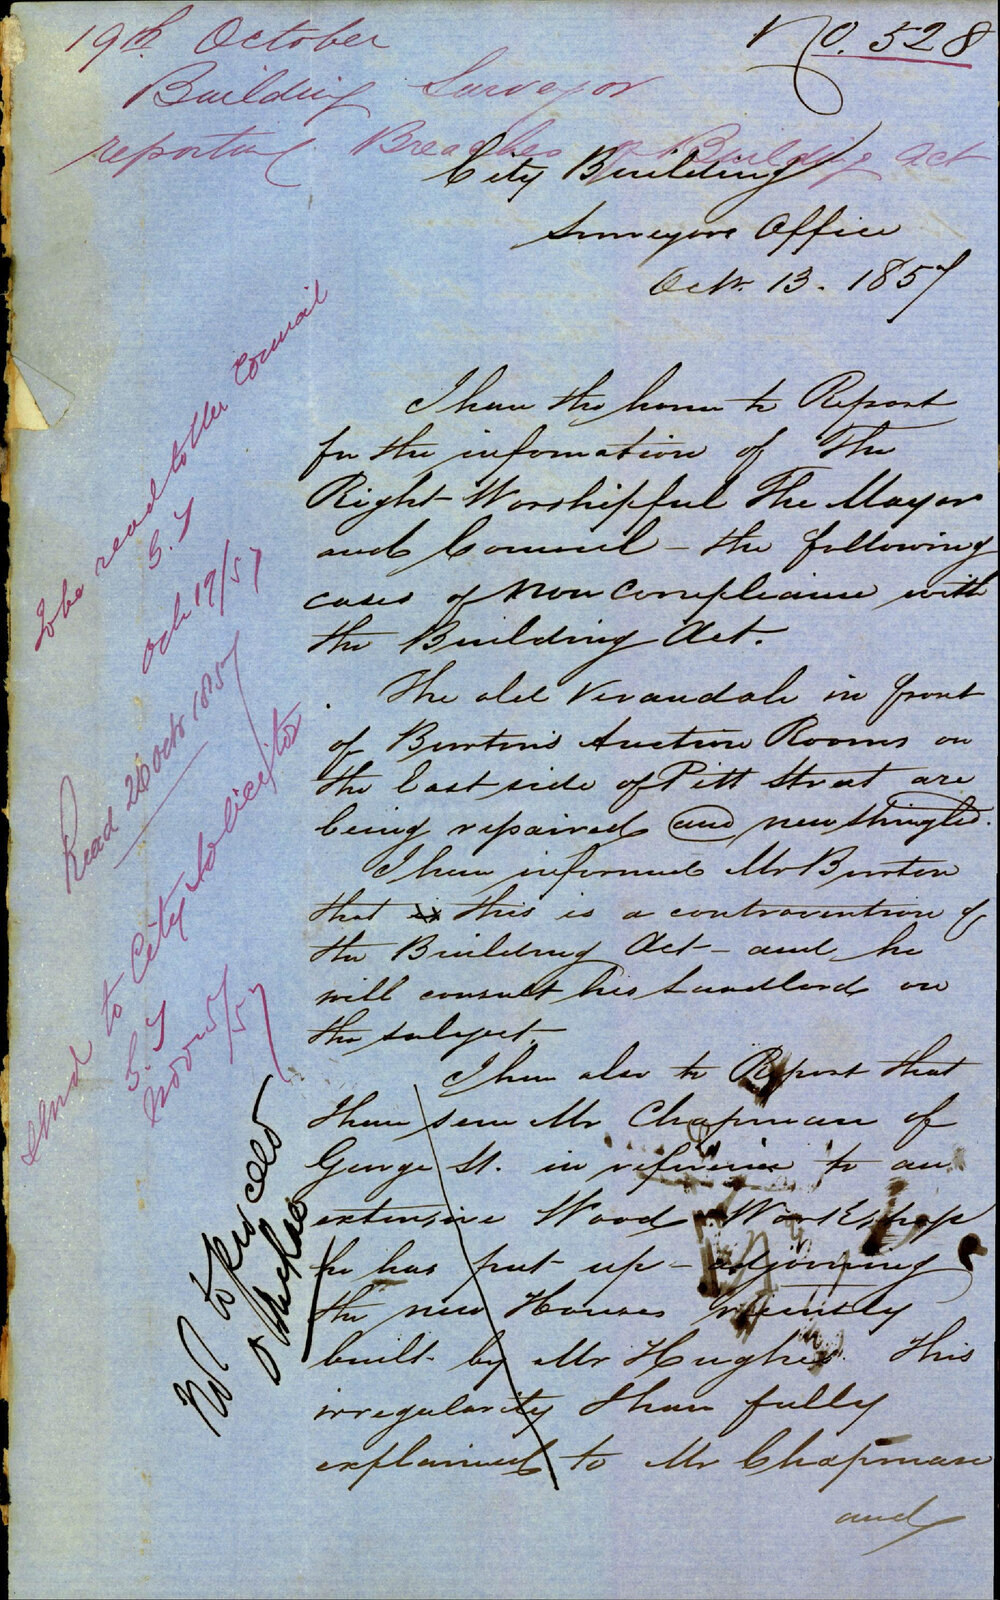 19th October
No. 528
Building Surveyor
reporting Breaches of Building Act
City Building
Surveyors Office
Octr. 13. 1857
I have the honor to Report
for the information of The
Right Worshipful The Mayor
and Council - the following
cases of non compliance with
the Building Act.
The old Verandah in front
of Burton's Auction Rooms on
the East side of Pitt Street are
being repaired and new shingled.
I have informed Mr Burton
that this is a contravention of
the Building Act - and he
will consult his Landlord on
the subject.
I have also to Report that
I have seen Mr Chapman of
George St. in reference to an
extensive Wood Workshop
he has put up - adjoining
the new Houses recently
built by Mr Hughes. This
irregularity I have fully
explained to Mr Chapman
and
To be read to the Council
Oct 19/57
Read 26 Octr 1857
Send to City Solicitor
Nov 5/57
Not to proceed